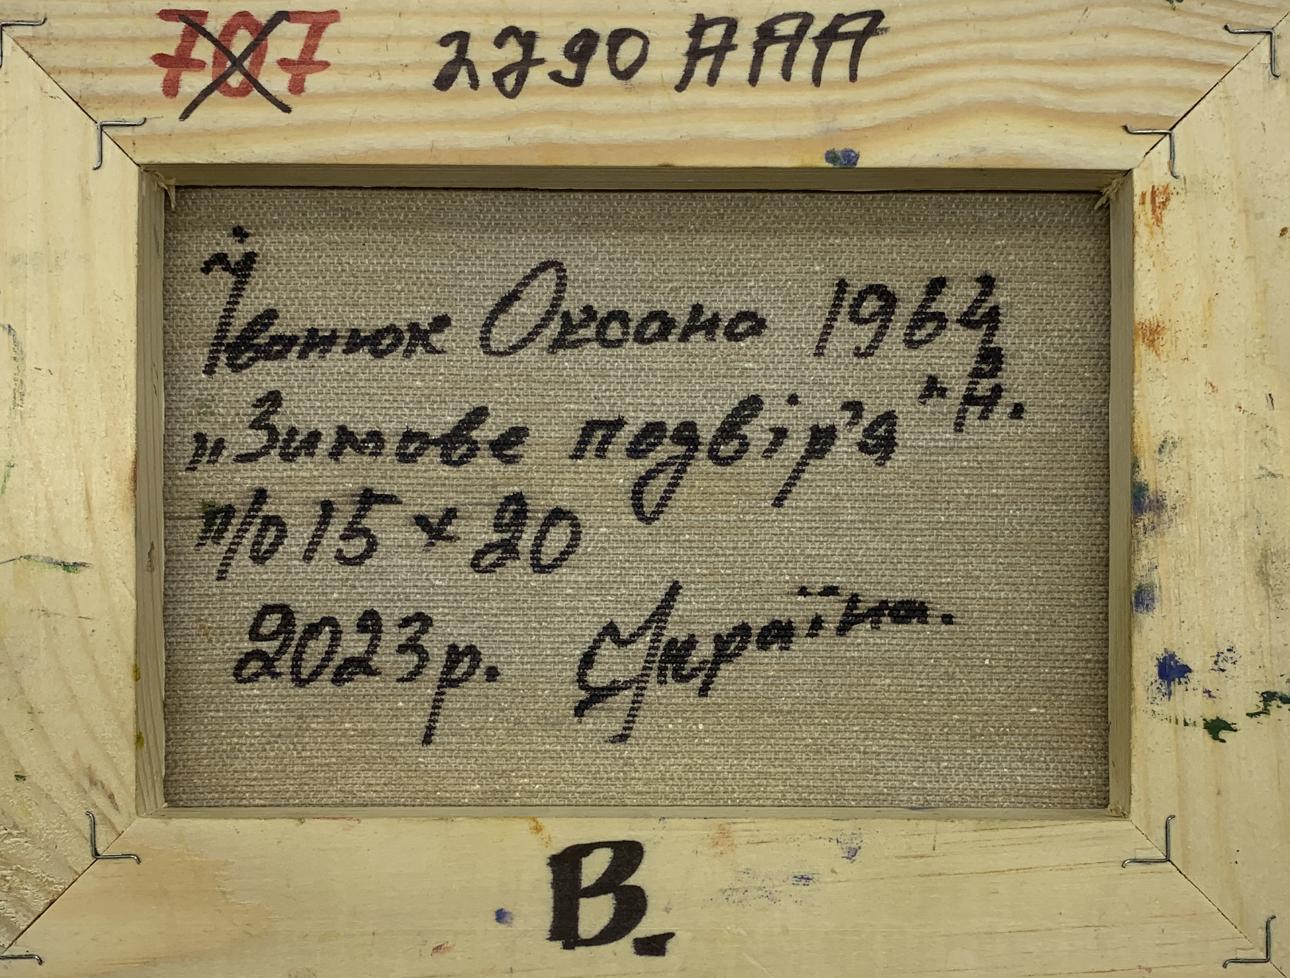 707 2790 AAA
Іванюк Оксана 1964
р.н.
„Зимове подвір'я"
п/о 15 x 20
2023р. Україна.
В.